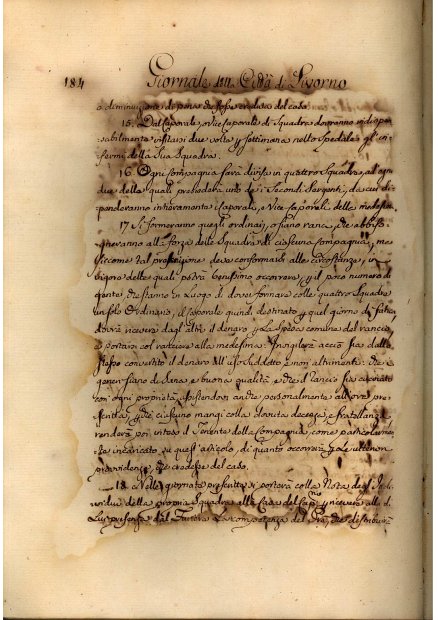 184 Giornale della Città di Livorno
o diminuzione di pena che fosse creduta del caso.
15. Dal Caporale, o Vice Caporale di Squadra dovranno indispen
sabilmente visitarsi due volte p. Settimana nello Spedale gl'in
fermi della Sua Squadra.
16. Ogni Compagnia sarà divisa in quattro Squadre, al
due della quali presiederà uno de i Secondi Sergenti, da cui di
penderanno intieramente i Caporali, e Vice Caporali delle medesime
17. Si formeranno quegli ordinarj, o siano ranci, che abbiso
gneranno alla forza delle Squadre di ciascuna Compagnia, me
siccome tal proporzione deve conformarsi alle circostanze, in
vigore delle quali potrà benissimo occorrere, p. il poco numero di
gente che siano in luogo di dover formare colle quattro Squadre
un solo Ordinario, il Caporale quindi destinato p. quel giorno di
dovrà ricevere dagl'altri il denaro p. la Spesa comune del rancio
e portarsi col ranciere alla medesima. Invigilerà acciò sia dallo
stesso convertito il denaro all'uso suddetto e non altrimenti: che i
generi siano di buona qualità, e che il rancio sia cucinato
con ogni proprietà, assistendovi anche personalmente all'ore pre
scritte, p. che ciascuno mangi colla dovuta decenza, e fratellanza
renderà poi inteso il Tenente della Compagnia, come particolarmen
te incaricato su quest'articolo, di quanto occorrerà p. le ulteriori
provvidenze, che credesse del caso.
18. Nelle giornate prescritte si porterà colla Nota degl'Indi
vidui della propria Squadra alla Casa del Cap.no p. ricevere alla di
Lui presenza dal Furiere la competenza del Prè, che distribuirà